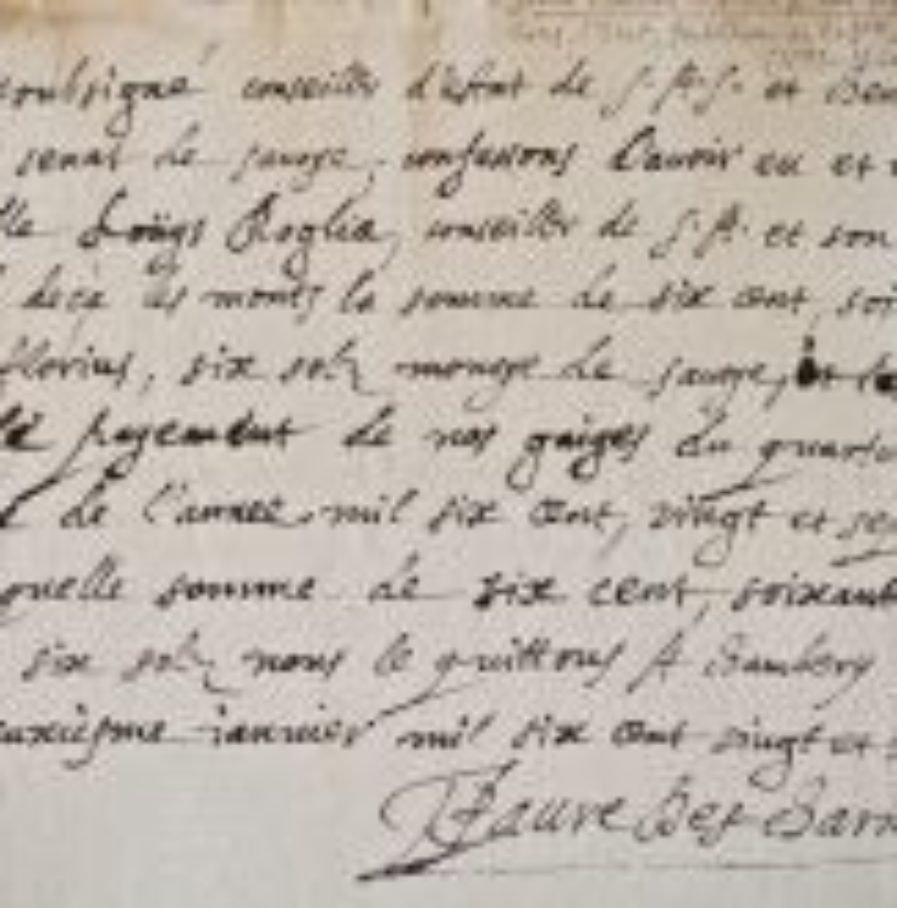 soubsigné conseiller d'estat de S. A. S. et
senat de sauoye, confessons l'auoir eu et
Loÿs Roglia, conseiller de S. A. et son
deça les monts la somme de six cent, soi
florins, six solz monoye de sauoye,
payement de nos gaiges du quartie
de l'annee mil six cent, vingt et se
quelle somme de six cent, soixant
six solz nous le quittons A Chambery
euxiesme ianuier mil six cent vingt et
Faure Des Charm